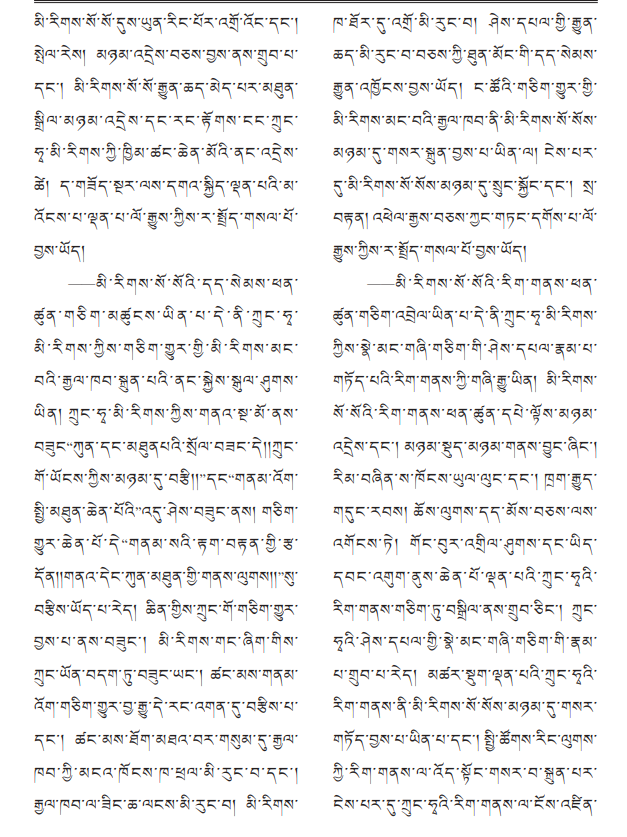 མི་རིགས་སོ་སོ་དུས་ཡུན་རིང་པོར་འགྲོ་འོང་དང་།
སྤེལ་རེས། མཉམ་འདྲེས་བཅས་བྱས་ནས་གྲུབ་པ་
དང་། མི་རིགས་སོ་སོ་རྒྱུན་ཆད་མེད་པར་མཐུན་
སྒྲིལ་མཉམ་འདྲེས་དང་རང་རྟོགས་ངང་ཀྲུང་
ཧྭ་མི་རིགས་ཀྱི་ཁྱིམ་ཚང་ཆེན་མོའི་ནང་འདྲེས་
ཚེ། ད་གཟོད་སྔར་ལས་དགའ་སྐྱིད་ལྡན་པའི་མ་
འོངས་པ་ལྡན་པ་ལོ་རྒྱུས་ཀྱིས་ར་སྤྲོད་གསལ་པོ་
བྱས་ཡོད།
——མི་རིགས་སོ་སོའི་དད་སེམས་ཕན་
ཚུན་གཅིག་མཚུངས་ཡིན་པ་དེ་ནི་ཀྲུང་ཧྭ་
མི་རིགས་ཀྱིས་གཅིག་གྱུར་གྱི་མི་རིགས་མང་
བའི་རྒྱལ་ཁབ་སྐྲུན་པའི་ནང་སྐྱེས་སྐུལ་ཤུགས་
ཡིན། ཀྲུང་ཧྭ་མི་རིགས་ཀྱིས་གནའ་སྔ་མོ་ནས་
བཟུང་“ཀུན་དང་མཐུནཔའི་སྲོལ་བཟང་དེ།།ཀྲུང་
གོ་ཡོངས་ཀྱིས་མཉམ་དུ་བརྩི།།”དང་“གནམ་འོག་
སྤྱི་མཐུན་ཆེན་པོའི”འདུ་ཤེས་བཟུང་ནས། གཅིག་
གྱུར་ཆེན་པོ་དེ་“གནམ་སའི་རྟག་བརྟན་གྱི་རྩ་
དོན།།གནའ་དེང་ཀུན་མཐུན་གྱི་གནས་ལུགས།།”སུ་
བརྩིས་ཡོད་པ་རེད། ཆིན་གྱིས་ཀྲུང་གོ་གཅིག་གྱུར་
བྱས་པ་ནས་བཟུང་། མི་རིགས་གང་ཞིག་གིས་
ཀྲུང་ཡོན་བདག་ཏུ་བཟུང་ཡང་། ཚང་མས་གནམ་
འོག་གཅིག་གྱུར་བྱ་རྒྱུ་དེ་རང་འགན་དུ་བརྩིས་པ་
དང་། ཚང་མས་ཐོག་མཐའ་བར་གསུམ་དུ་རྒྱལ་
ཁབ་ཀྱི་མངའ་ཁོངས་ཁ་ཕྲལ་མི་རུང་བ་དང་།
རྒྱལ་ཁབ་ལ་ཟིང་ཆ་ལངས་མི་རུང་བ། མི་རིགས་
ཁ་ཐོར་དུ་འགྲོ་མི་རུང་བ། ཤེས་དཔལ་གྱི་རྒྱུན་
ཆད་མི་རུང་བ་བཅས་ཀྱི་ཐུན་མོང་གི་དད་སེམས་
རྒྱུན་འཁྱོངས་བྱས་ཡོད། ང་ཚོའི་གཅིག་གྱུར་གྱི་
མི་རིགས་མང་བའི་རྒྱལ་ཁབ་ནི་མི་རིགས་སོ་སོས་
མཉམ་དུ་གསར་སྐྲུན་བྱས་པ་ཡིན་ལ། ངེས་པར་
དུ་མི་རིགས་སོ་སོས་མཉམ་དུ་སྲུང་སྐྱོང་དང་། སྲ་
བརྟན། འཕེལ་རྒྱས་བཅས་ཀྱང་གཏང་དགོས་པ་ལོ་
རྒྱུས་ཀྱིས་ར་སྤྲོད་གསལ་པོ་བྱས་ཡོད།
——མི་རིགས་སོ་སོའི་རིག་གནས་ཕན་
ཚུན་གཅིག་འབྲེལ་ཡིན་པ་དེ་ནི་ཀྲུང་ཧྭ་མི་རིགས་
ཀྱིས་སྣེ་མང་གཞི་གཅིག་གི་ཤེས་དཔལ་རྣམ་པ་
གཏོད་པའི་རིག་གནས་ཀྱི་གཞི་རྒྱུ་ཡིན། མི་རིགས་
སོ་སོའི་རིག་གནས་ཕན་ཚུན་དཔེ་ལྟོས་མཉམ་
འདྲེས་དང་། མཉམ་སྡུད་མཉམ་གནས་བྱུང་ཞིང་།
རིམ་བཞིན་ས་ཁོངས་ཡུལ་ལུང་དང་། ཁྲག་རྒྱུད་
གདུང་རབས། ཆོས་ལུགས་དད་མོས་བཅས་ལས་
འགོངས་ཏེ། གོང་བུར་འགྲིལ་ཤུགས་དང་ཡིད་
དབང་འགུག་ནུས་ཆེན་པོ་ལྡན་པའི་ཀྲུང་ཧྭའི་
རིག་གནས་གཅིག་ཏུ་བསྒྲིལ་ནས་གྲུབ་ཅིང་། ཀྲུང་
ཧྭའི་ཤེས་དཔལ་གྱི་སྣེ་མང་གཞི་གཅིག་གི་རྣམ་
པ་གྲུབ་པ་རེད། མཚར་སྡུག་ལྡན་པའི་ཀྲུང་ཧྭའི་
རིག་གནས་ནི་མི་རིགས་སོ་སོས་མཉམ་དུ་གསར་
གཏོད་བྱས་པ་ཡིན་པ་དང་། སྤྱི་ཚོགས་རིང་ལུགས་
ཀྱི་རིག་གནས་ལ་འོད་སྟོང་གསར་བ་སྐྲུན་པར་
ངེས་པར་དུ་ཀྲུང་ཧྭའི་རིག་གནས་ལ་ངོས་འཛིན་